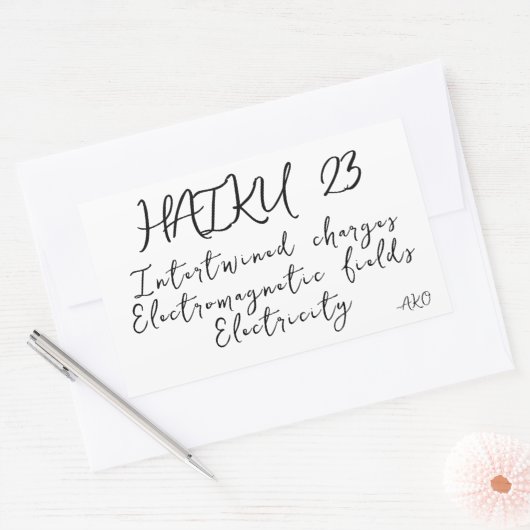 HAIKU 23
Intertwined charges
Electromagnetic fields
Electricity
-AKO